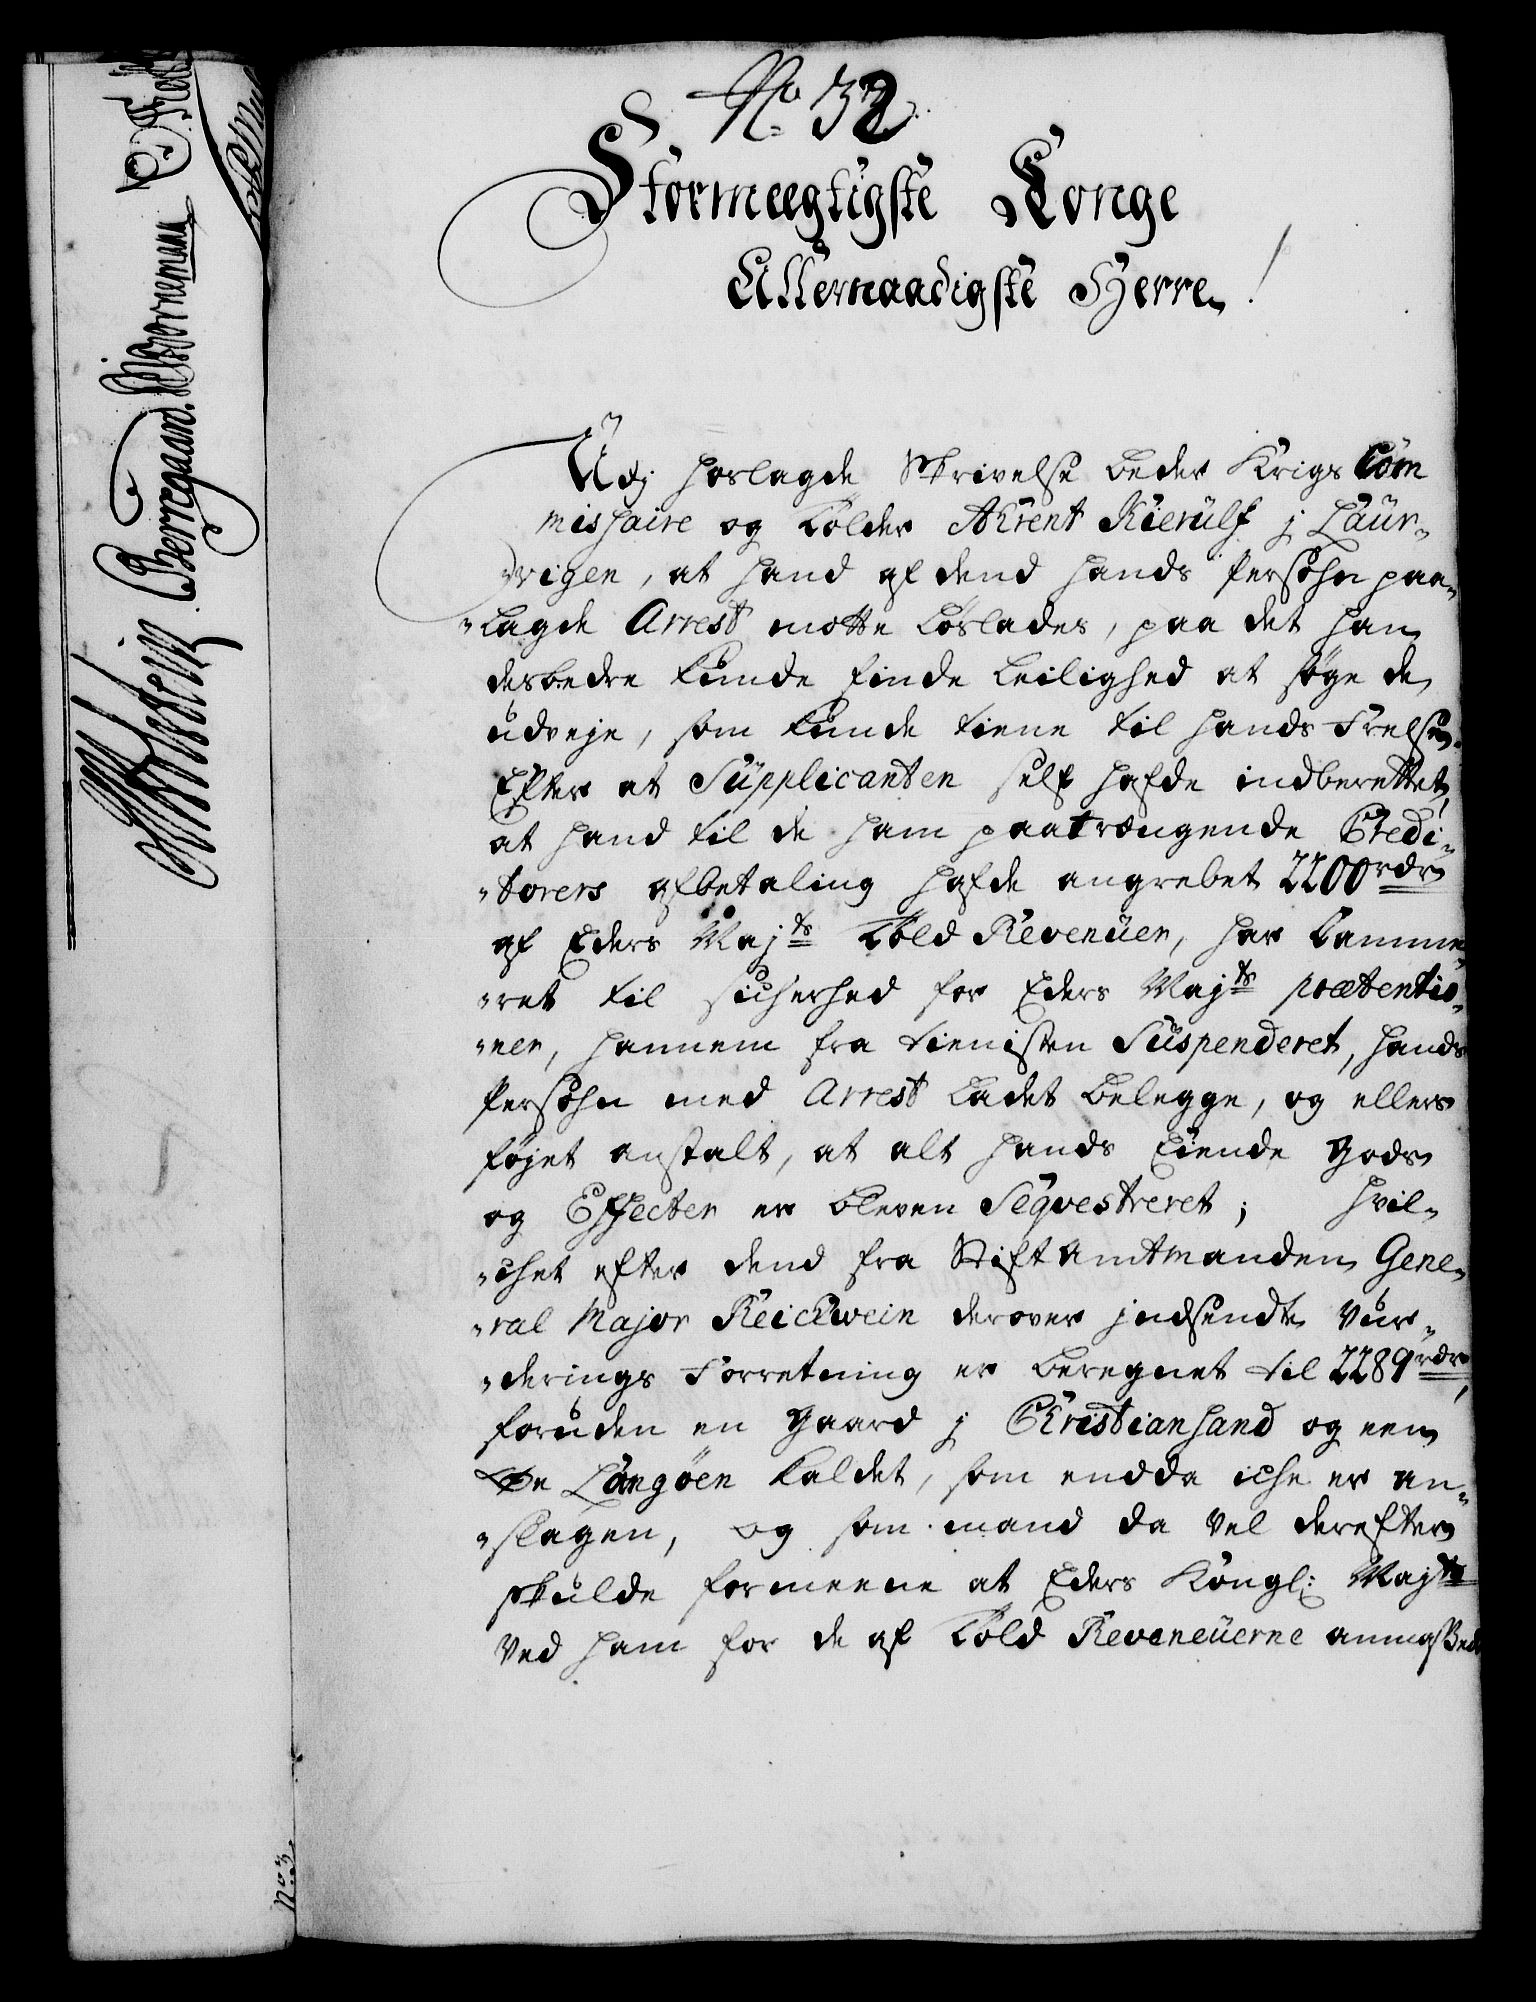 No. 32
Stormægtigste Konge
Allernaadigste Herre!
Udj hoslagde Skrivelse beder Krigs Com
missaire og Tolder Ahrent Kierulf j Laur-
vigen, at hand af dend hands Persohn paa-
lagde Arrest motte løslades, paa det han
desbedre kunde finde Leilighed at søge de
udveje, som kunde tiene til hands Frelse.
Efter at Supplicanten self hafde indberettet,
at hand til de ham paatrængende Credi-
torers afbetaling hafde angrebet 2200 rdr
af Eders Majts Told Revenuer, har Camme-
ret til sicherhed for Eders Majts prætentio-
ner, hannem fra tienisten Suspenderet, hands
Persohn med Arrest ladet belegge, og ellers
føjet anstalt, at alt hands Eiende Gods
og Effecter er bleven Seqvestreret; hvil-
chet efter dend fra Stiftamtmanden Gene-
ral Major Reichwein derover jndsendte Vur-
derings Forretning er beregnet til 2289 rdr,
foruden en Gaard j Christiansand og een
Øe Langøen kaldet, som endda iche er an-
slagen, og som mand da vel derefter
skulde formeene at Eders Kongl: Majts
ved ham for de af Told Reveneuerne anmassede
Bernegaard. Bornemann
No. 3